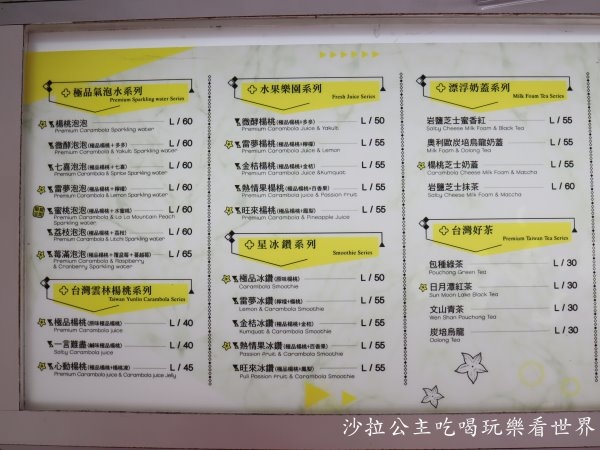 極品氣泡水系列
Premium Sparkling water Series
楊桃泡泡 L / 60
Premium Carambola Sparkling water
微酵泡泡(極品楊桃+多多) L / 60
Premium Carambola & Yakult Sparkling water
七喜泡泡(極品楊桃+七喜) L / 60
Premium Carambola & Sprite Sparkling water
雷夢泡泡(極品楊桃+檸檬) L / 60
Premium Carambola & Lemon Sparkling water
蜜桃泡泡(極品楊桃+水蜜桃) L / 60
Premium Carambola & La La Mountain Peach
Sparkling water
荔枝泡泡(極品楊桃+荔枝) L / 60
Premium Carambola & Litchi Sparkling water
莓滿泡泡(極品楊桃+覆盆莓+蔓越莓) L / 65
Premium Carambola & Raspberry
& Cranberry Sparkling water
台灣雲林楊桃系列
Taiwan Yunlin Carambola Series
極品楊桃(原味楊桃) L / 40
Premium Carambola juice
一言難盡(鹹味極品楊桃) L / 40
Salty Carambola juice
心動楊桃(極品楊桃+楊桃凍) L / 45
Premium Carambola juice & Carambola juice Jelly
水果樂園系列
Fresh Juice Series
微酵楊桃(極品楊桃+多多) L / 50
Premium Carambola Juice & Yakult
雷夢楊桃(極品楊桃+檸檬) L / 55
Premium Carambola Juice & Lemon
金桔楊桃(極品楊桃+金桔) L / 55
Premium Carambola Juice &Kumquat
熱情果楊桃(極品楊桃+百香果) L / 55
Premium Carambola juice & Passion Fruit
旺來楊桃(極品楊桃+鳳梨) L / 55
Premium Carambola & Pineapple Juice
星冰鑽系列
Smoothie Series
極品冰鑽(原味楊桃) L / 50
Carambola Smoothie
雷夢冰鑽(檸檬+楊桃) L / 55
Lemon & Carambola Smoothie
金桔冰鑽(極品楊桃+金桔) L / 55
Kumquat & Carambola Smoothie
熱情果冰鑽(極品楊桃+百香果) L / 55
Passion Fruit & Carambola Smoothie
旺來冰鑽(極品楊桃+鳳梨) L / 55
Pull Passion Fruit & Carambola Smoothie
漂浮奶蓋系列
Milk Foam Tea Series
岩鹽芝士蜜香紅 L / 55
Salty Cheese Milk Foam & Black Tea
奧利歐炭培烏龍奶蓋 L / 55
Milk Foam & Oolong Tea
楊桃芝士奶蓋 L / 55
Carambola Cheese Milk Foam & Matcha
岩鹽芝士抹茶 L / 60
Salty Cheese Milk Foam & Matcha
台灣好茶
Premium Taiwan Tea Series
包種綠茶 L / 30
Pouchong Green Tea
日月潭紅茶 L / 30
Sun Moon Lake Black Tea
文山青茶 L / 30
Wen Shan Pouchong Tea
炭培烏龍 L / 30
Oolong Tea
沙拉公主吃喝玩樂看世界